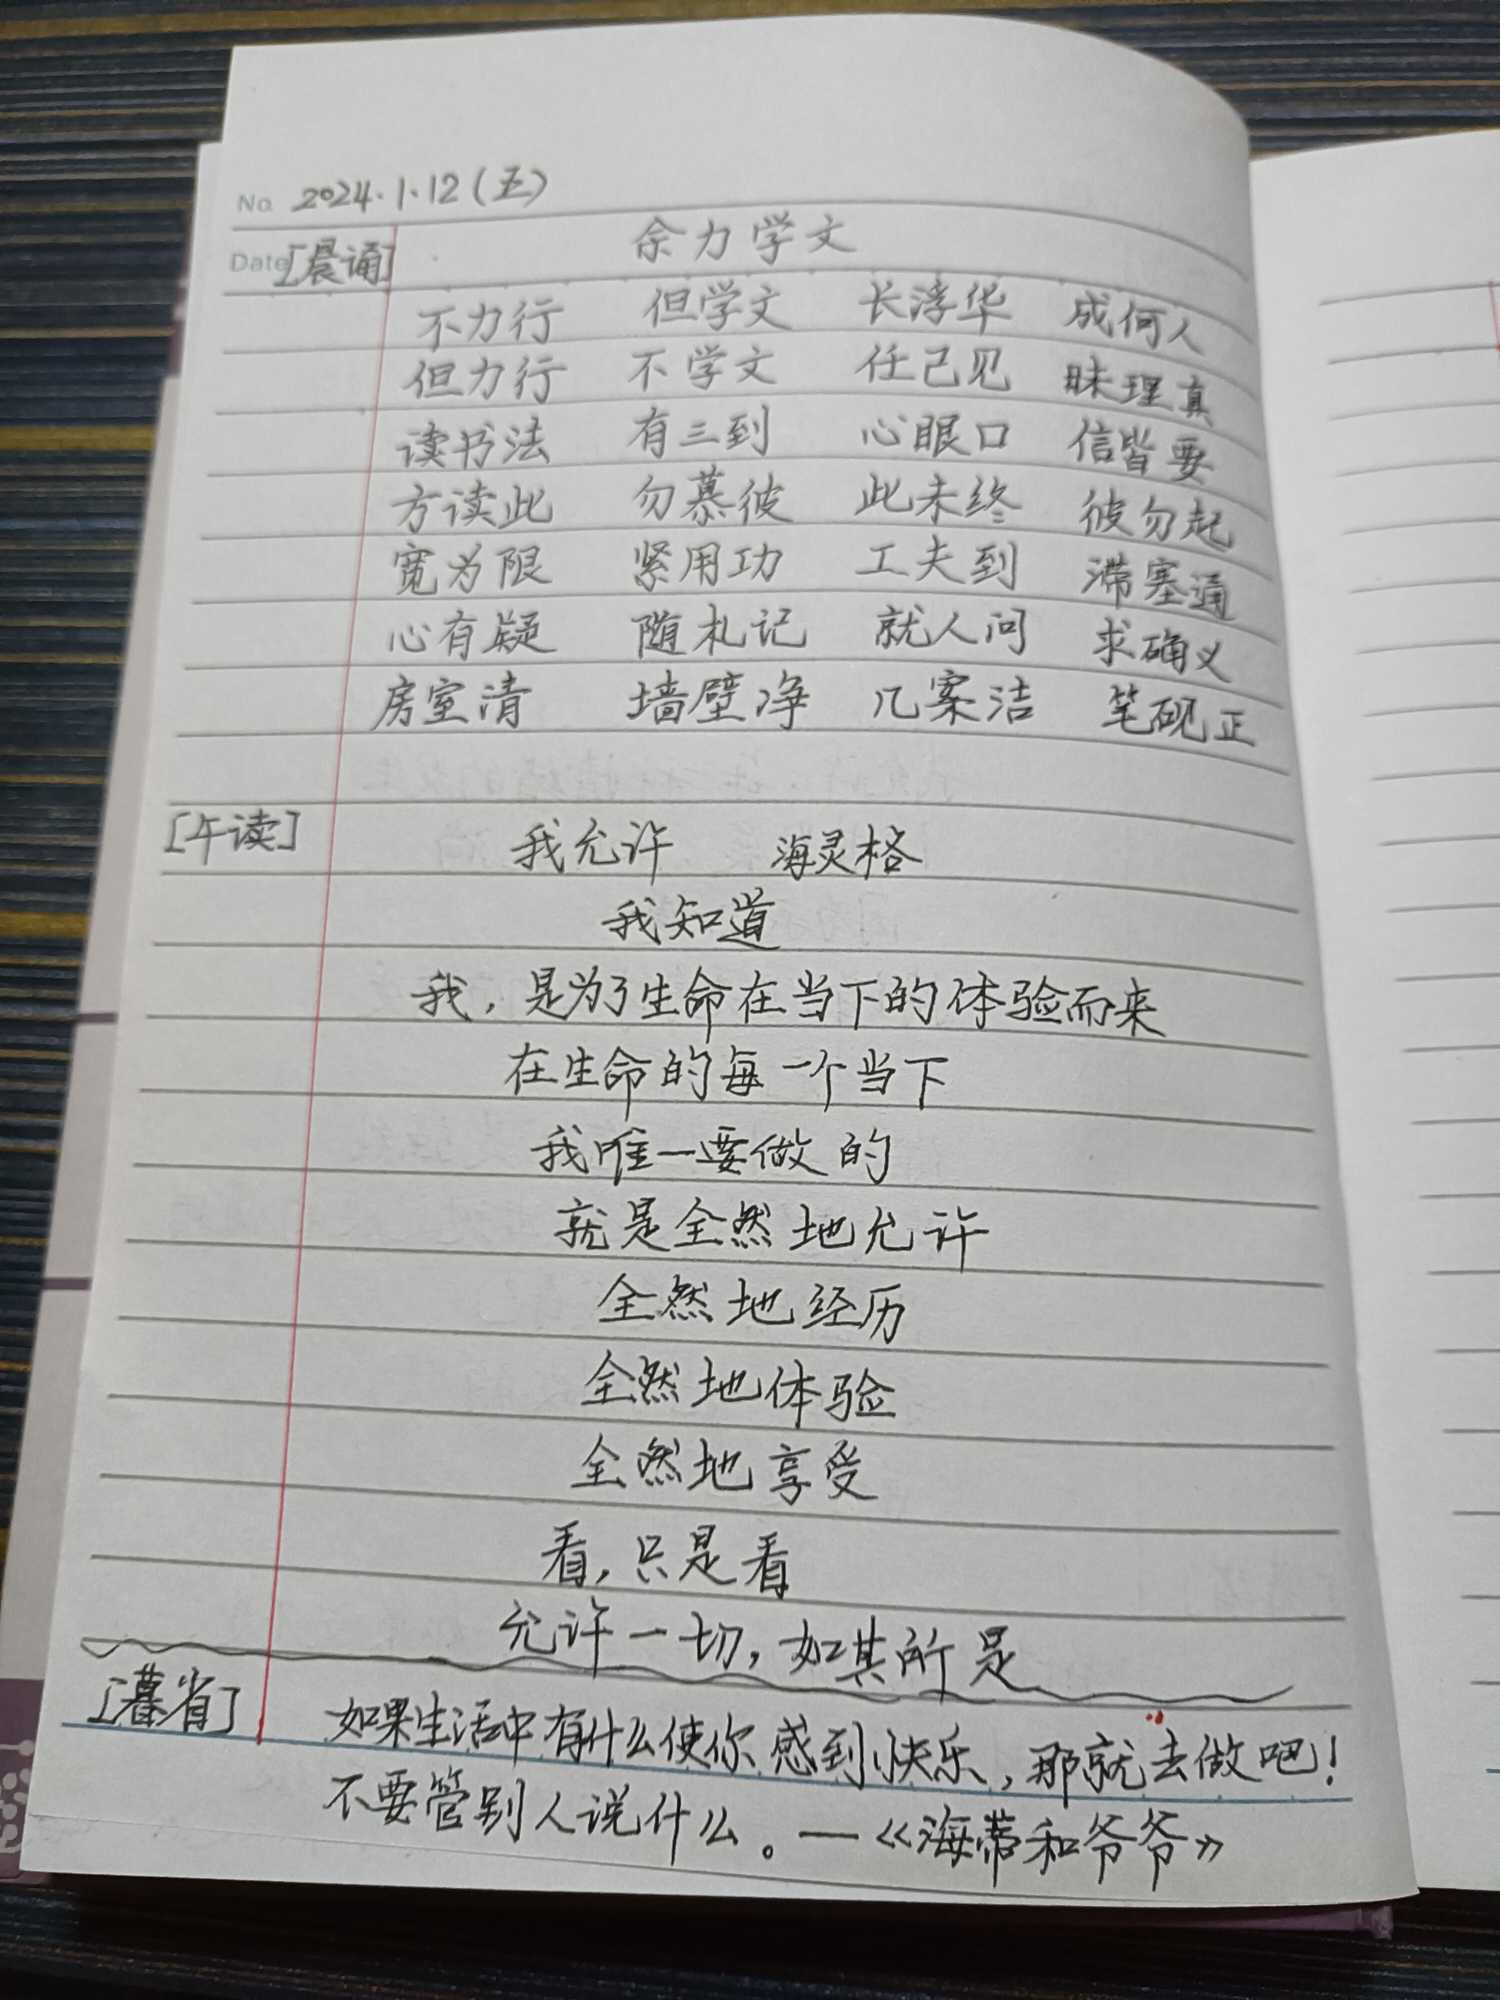 No. 2024.1.12(五)
Date [晨诵] 余力学文
不力行 但学文 长浮华 成何人
但力行 不学文 任己见 昧理真
读书法 有三到 心眼口 信皆要
方读此 勿慕彼 此未终 彼勿起
宽为限 紧用功 工夫到 滞塞通
心有疑 随札记 就人问 求确义
房室清 墙壁净 几案洁 笔砚正
[午读] 我允许 海灵格
我知道
我,是为了生命在当下的体验而来
在生命的每一个当下
我唯一要做的
就是全然地允许
全然地经历
全然地体验
全然地享受
看,只是看
允许一切,如其所是
[暮省] 如果生活中有什么使你感到快乐,那就去做吧!
不要管别人说什么。—《海蒂和爷爷》